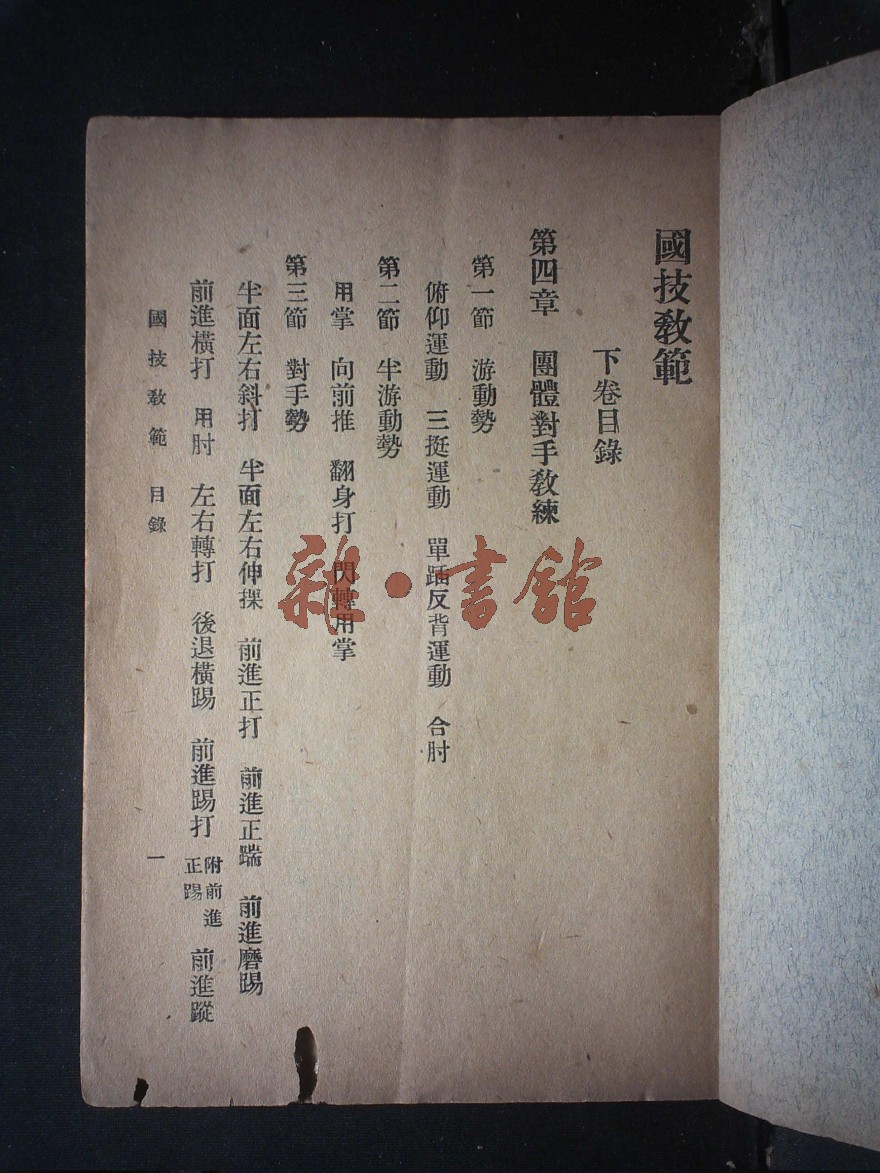 國技教範
下卷目錄
第四章 團體對手教練
第一節 游動勢
俯仰運動 三挺運動 單踊反背運動 合肘
第二節 半游動勢
用掌 向前推 翻身打 閃轉用掌
第三節 對手勢
半面左右斜打 半面左右伸捰 前進正打 前進正踹 前進磨踢
前進橫打 用肘 左右轉打 後退橫踢 前進踢打 附前進正踢 前進蹤
國技教範 目錄 一
雜·書館